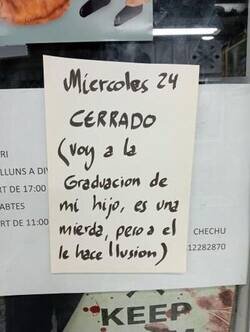 Miercoles 24
CERRADO
(voy a la
Graduacion de
mi hijo, es una
mierda, pero a el
le hace Ilusion)
RI
LLUNS A DIV
RT DE 17:00
ABTES
RT DE 11:00
CHECHU
12282870
KEEP